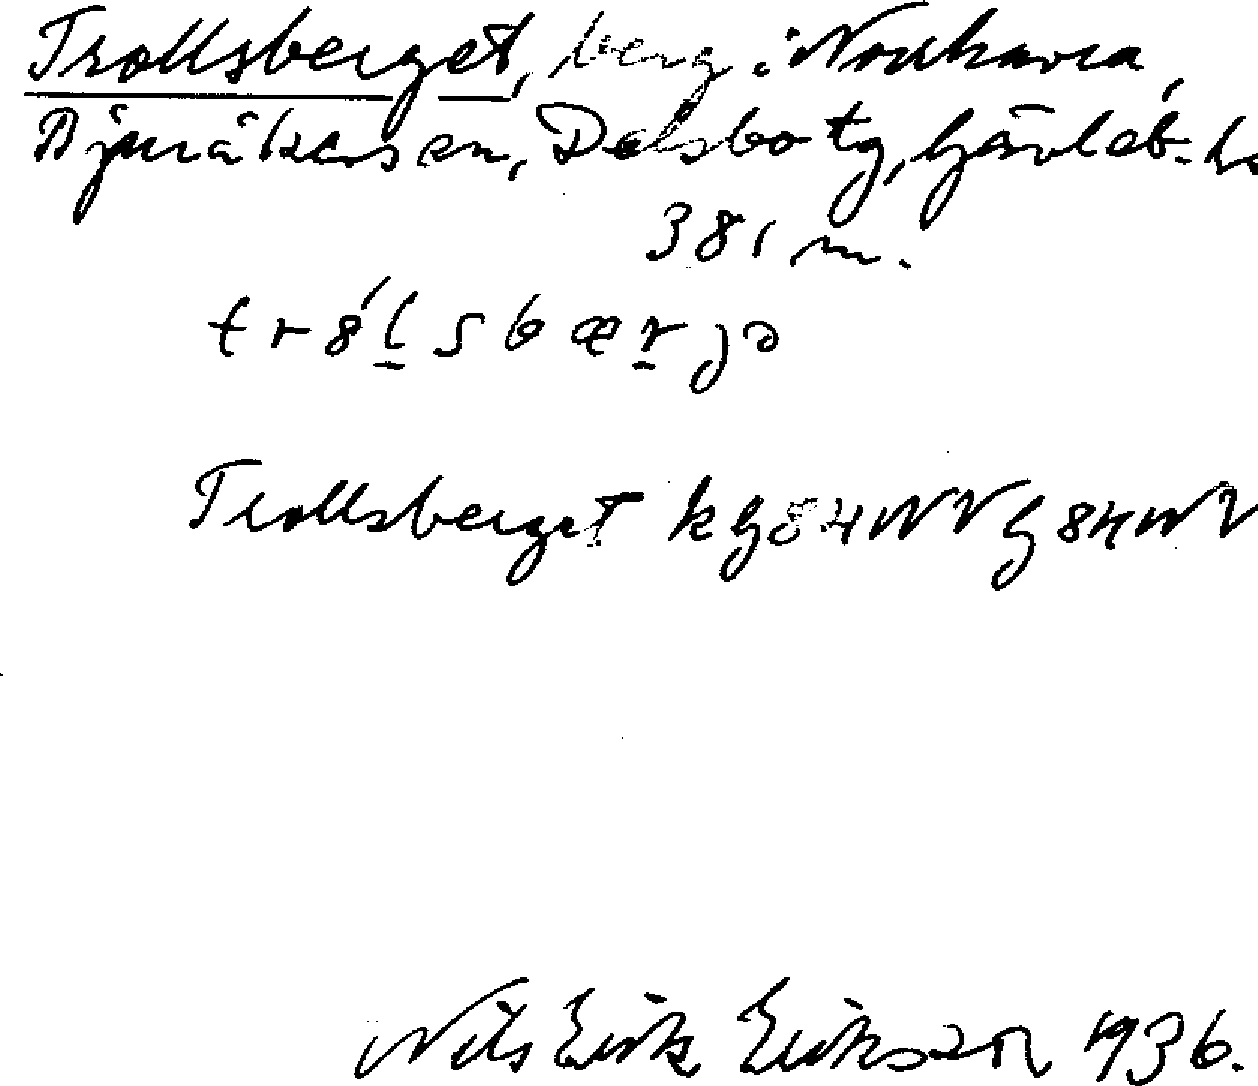 Trollsberget, berg i Norrhavra,
Bjuråkers sn, Delsbo tg, Gävleb. l.
381 m.
tr8́l̠sbær̠jə
Trollsberget kg 84 NV g 84 NV
Nils Erik Eriksson 1936.